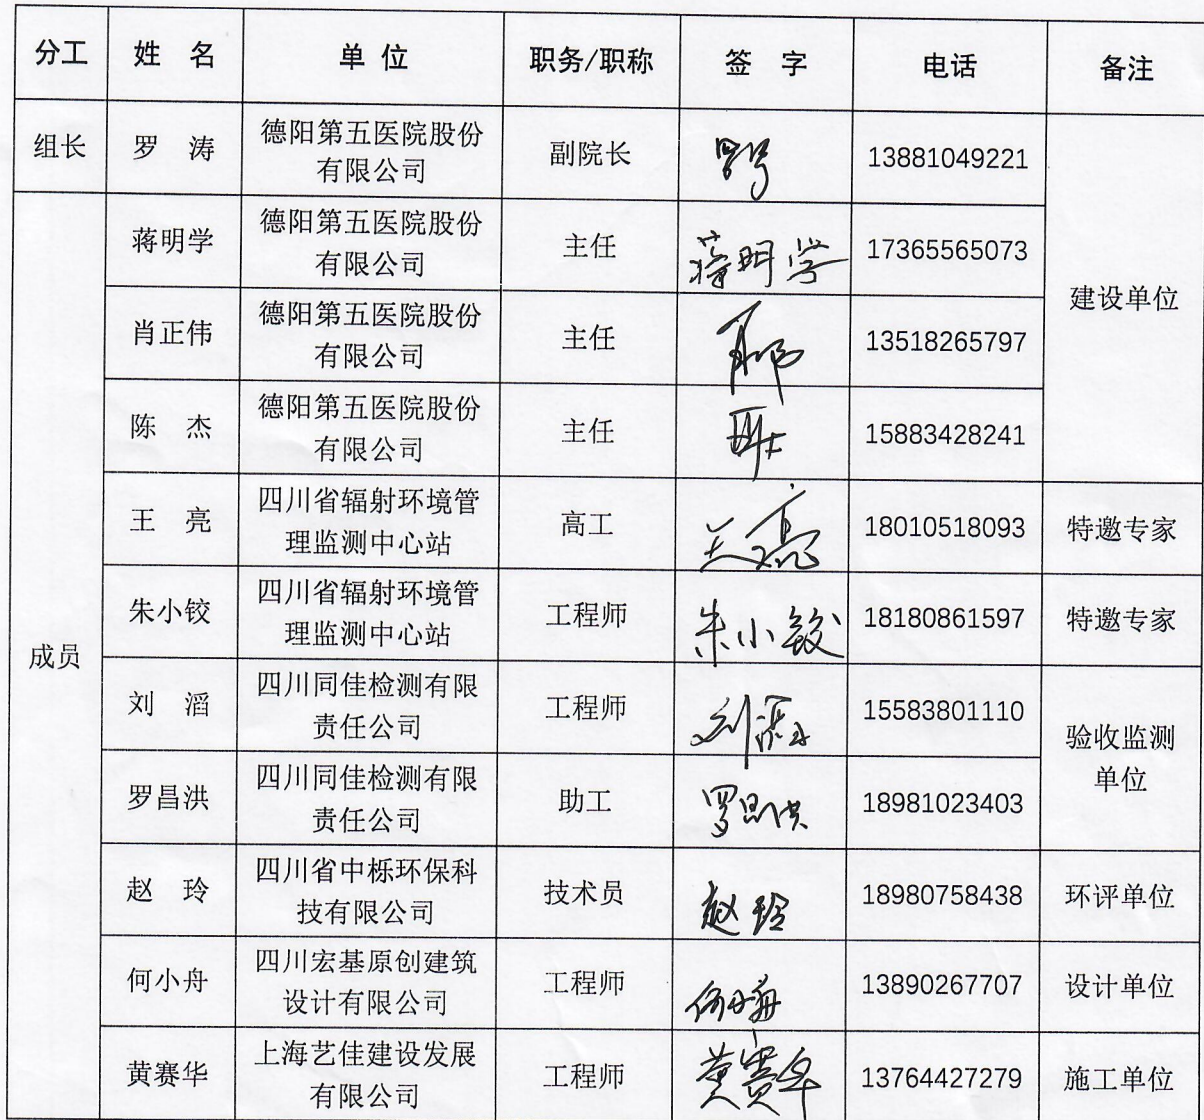 分工 姓 名 单 位 职务/职称 签 字 电话 备注
组长 罗 涛 德阳第五医院股份
有限公司 副院长 13881049221
建设单位
成员
蒋明学 德阳第五医院股份
有限公司 主任 蒋明学 17365565073
肖正伟 德阳第五医院股份
有限公司 主任 13518265797
陈 杰 德阳第五医院股份
有限公司 主任 15883428241
王 亮 四川省辐射环境管
理监测中心站 高工 王亮 18010518093 特邀专家
朱小铰 四川省辐射环境管
理监测中心站 工程师 朱小铰 18180861597 特邀专家
刘 滔 四川同佳检测有限
责任公司 工程师 刘滔 15583801110
验收监测
单位
罗昌洪 四川同佳检测有限
责任公司 助工 罗昌洪 18981023403
赵 玲 四川省中栎环保科
技有限公司 技术员 赵玲 18980758438 环评单位
何小舟 四川宏基原创建筑
设计有限公司 工程师 何小舟 13890267707 设计单位
黄赛华 上海艺佳建设发展
有限公司 工程师 黄赛华 13764427279 施工单位